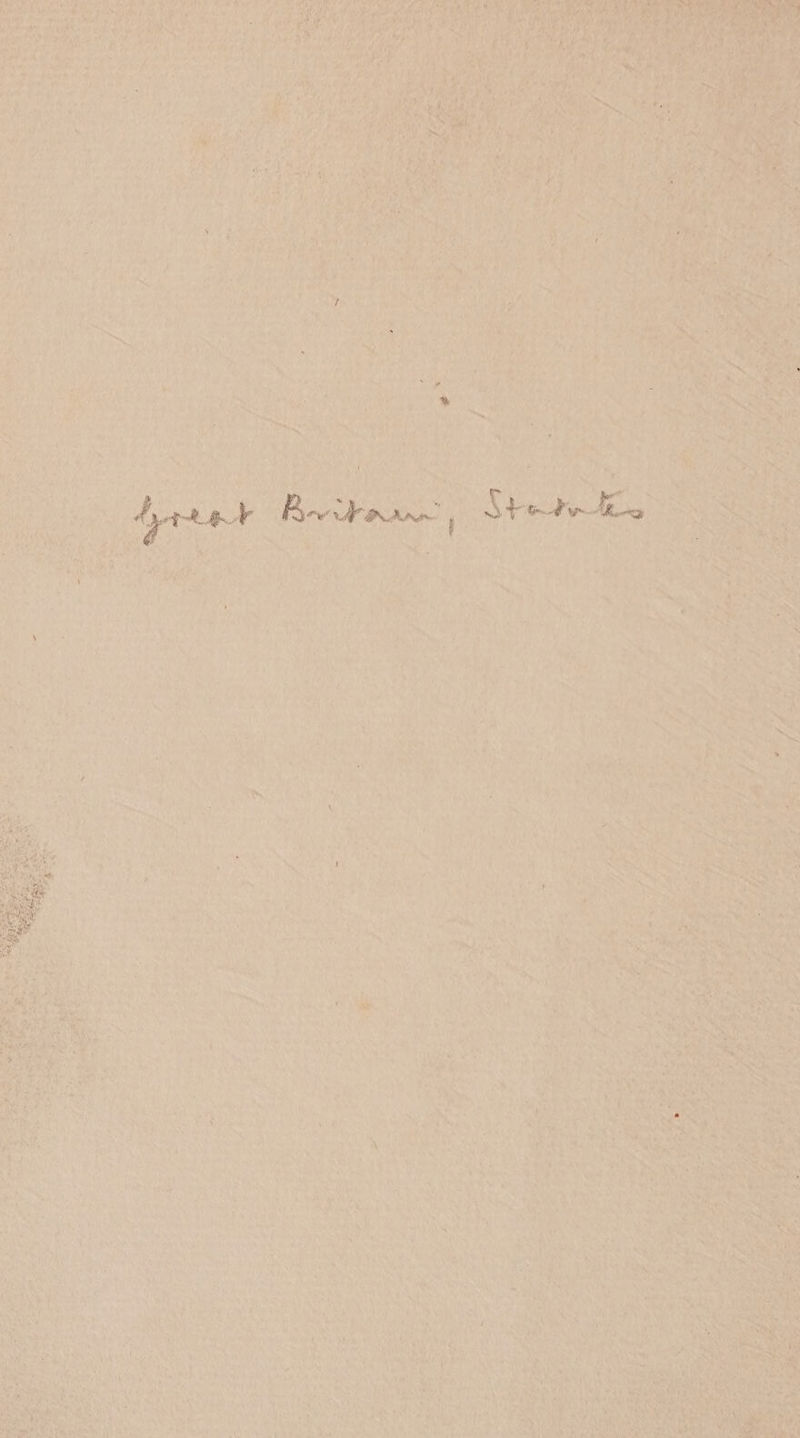 Great Britain, Statutes